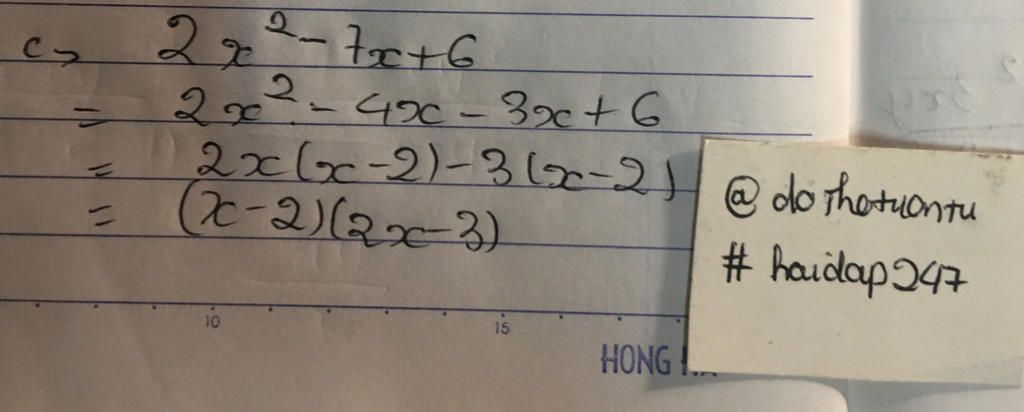 c> 2x² - 7x + 6
= 2x² - 4x - 3x + 6
= 2x(x - 2) - 3(x - 2)
= (x - 2)(2x - 3)
@dothetuantu
# hoidap247
10 15
HONG